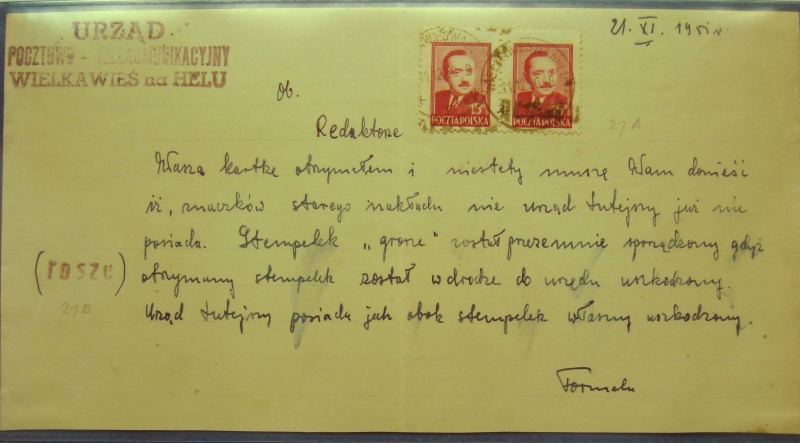 URZĄD
POCZTOWO - TELEKOMUNIKACYJNY
WIELKAWIEŚ na HELU
21. XI. 195
15
POCZTA POLSKA
15
POCZTA POLSKA
27A
Ob.
Redaktorze
Waszą kartkę otrzymałem i niestety muszę Wam donieść
iż, znaczków starego nakładu nie urząd tutejszy już nie
posiada. Stempelek „grosze" został przezemnie sporządzony gdyż
(rosze)
otrzymany stempelek został w drodze do urzędu uszkodzony.
27B
Urząd tutejszy posiada jak obok stempelek własny uszkodzony.